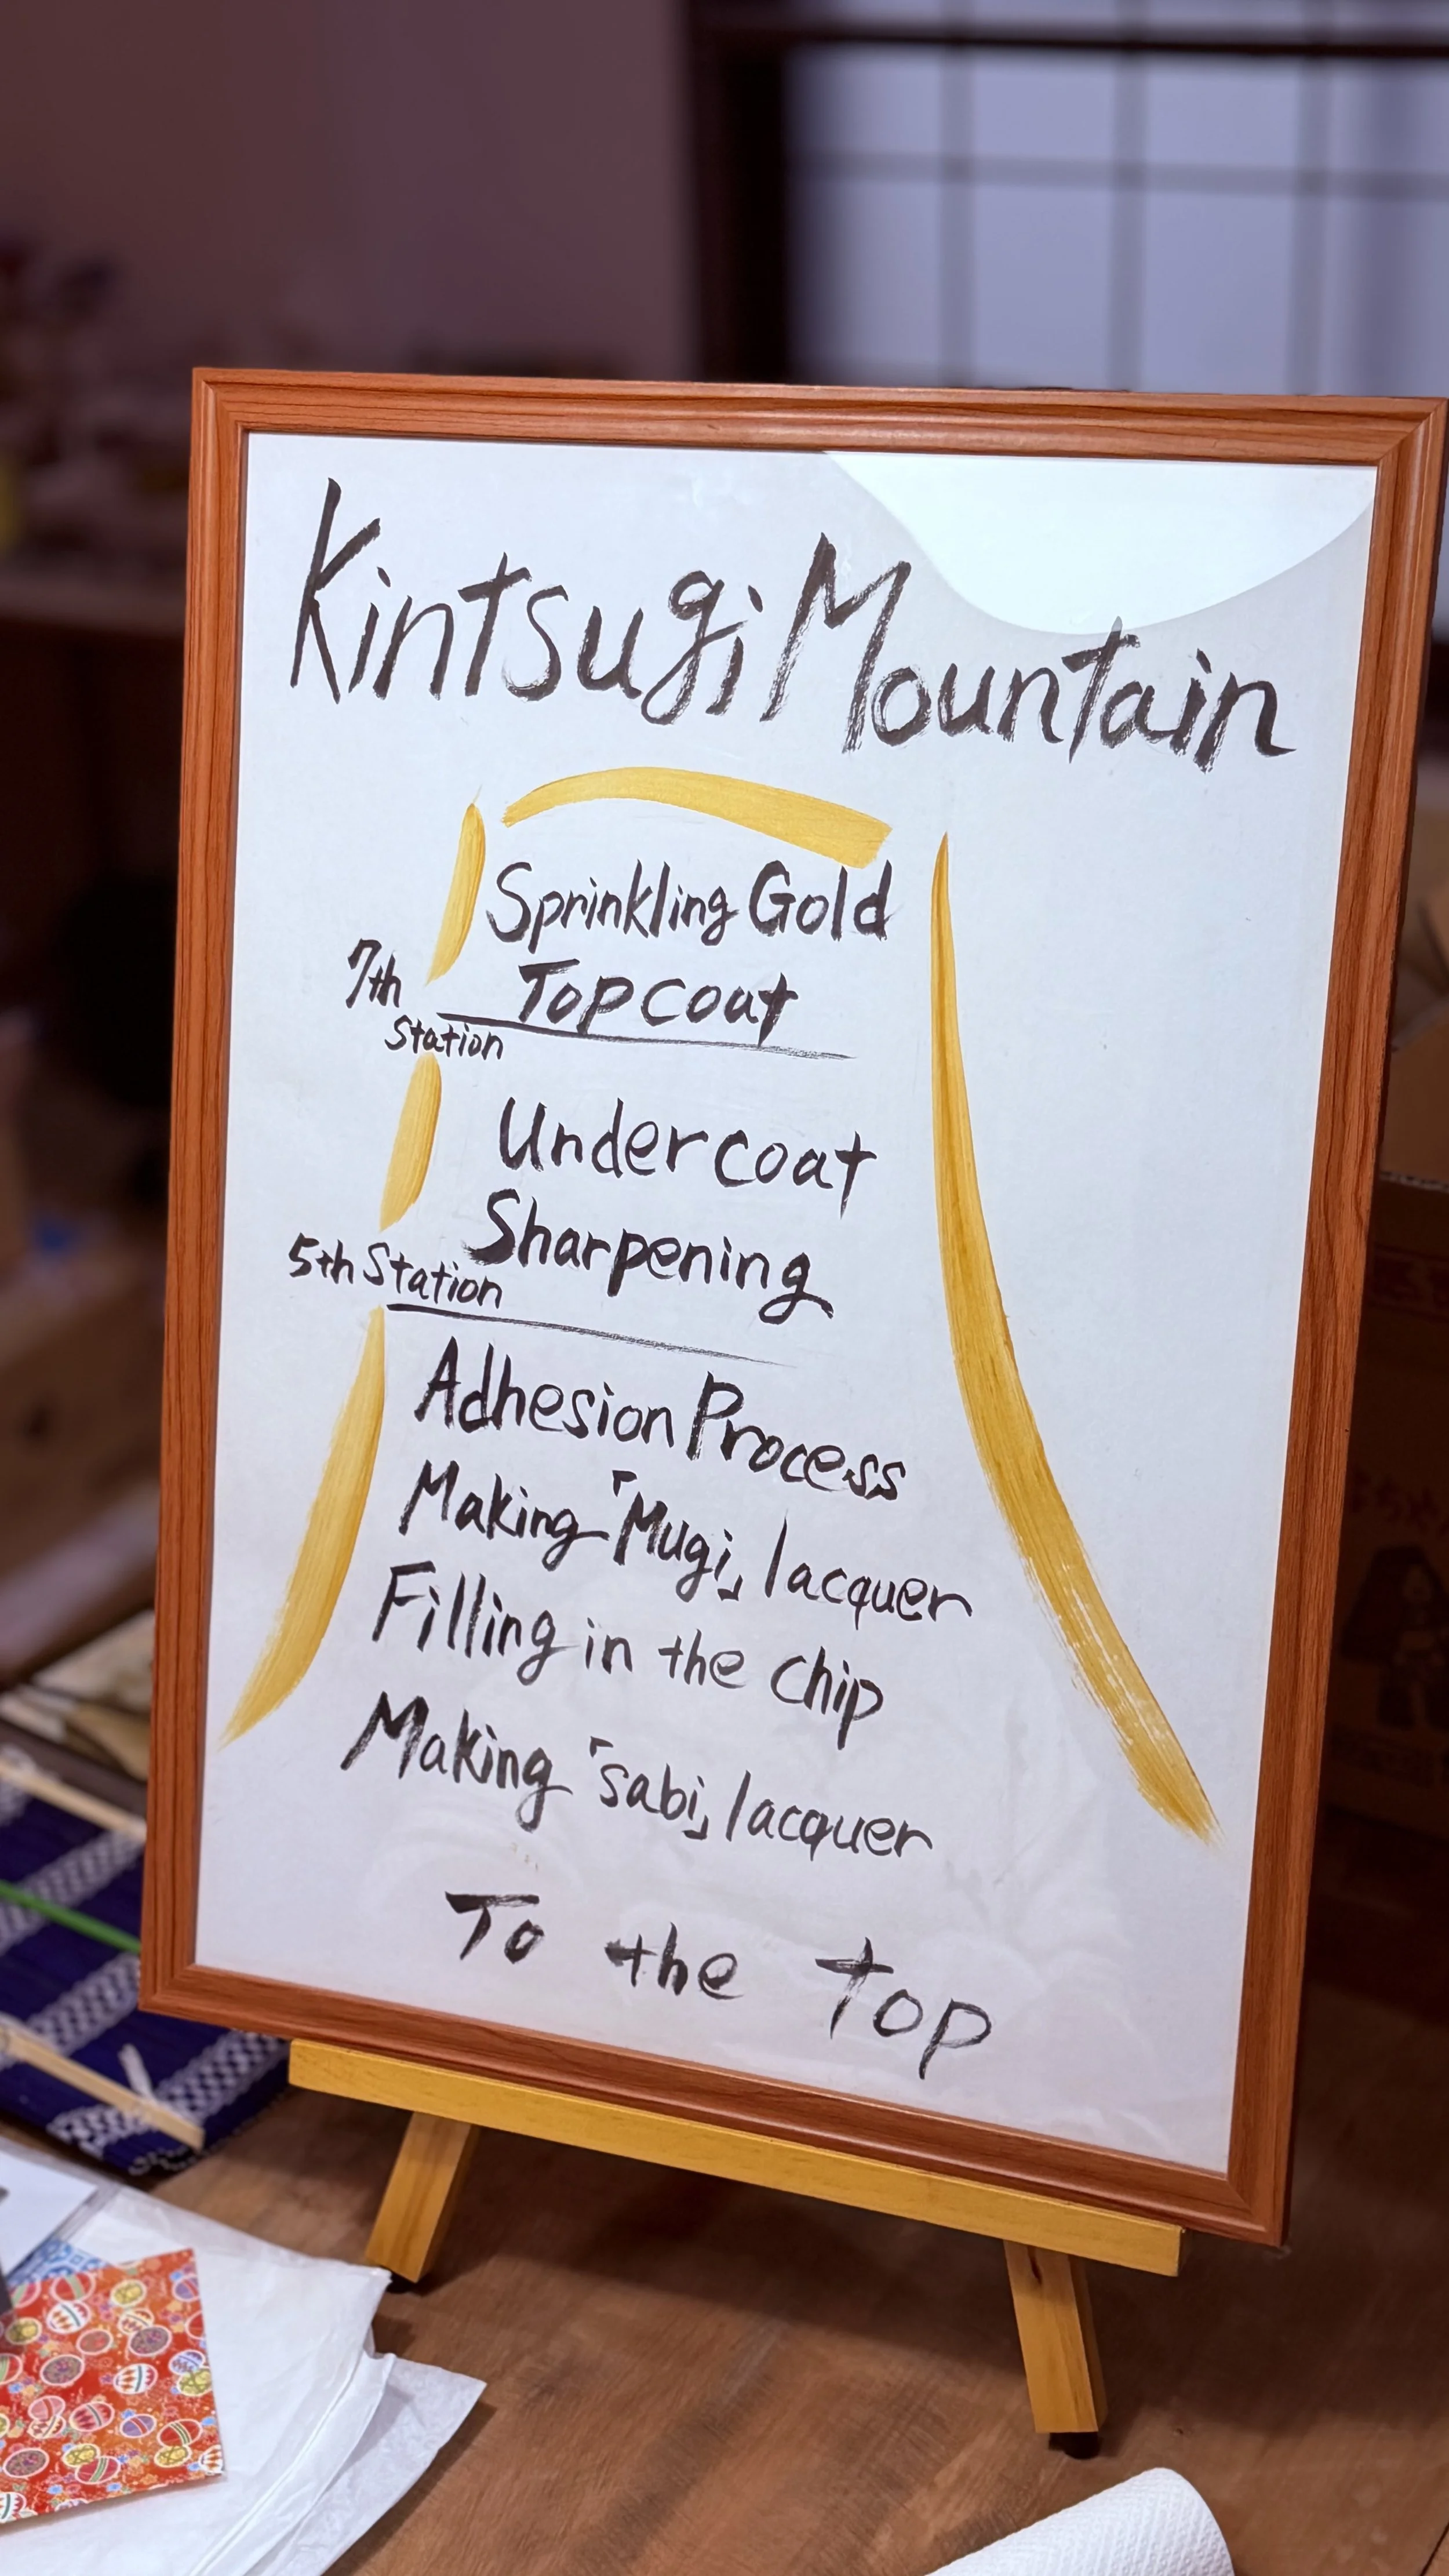 Kintsugi Mountain
Sprinkling Gold
Topcoat
7th
Station
Undercoat
Sharpening
5th Station
Adhesion Process
Making「Mugi」lacquer
Filling in the chip
Making「sabi」lacquer
To the top